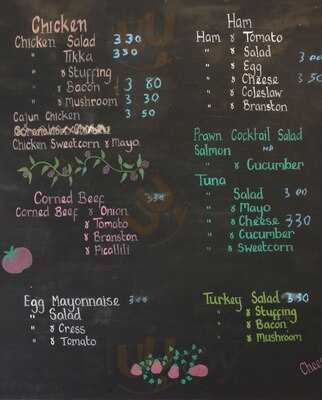 Chicken
Chicken Salad 3 30
" Tikka 3 30
" & Stuffing
" & Bacon 3 80
" & Mushroom 3 30
Cajun Chicken 3 50
Chicken Sweetcorn & Mayo
Corned Beef 3 30
Corned Beef & Onion
& Tomato
& Branston
& Picallili
Egg Mayonnaise 3 00
" Salad
" & Cress
" & Tomato
Ham
Ham & Tomato
" & Salad 3 00
" & Egg
" & Cheese 3 50
" & Coleslaw
" & Branston
Prawn Cocktail Salad
Salmon
" & Cucumber
Tuna
" Salad 3 00
" & Mayo
" & Cheese 3 30
" & Cucumber
" & Sweetcorn
Turkey Salad 3 30
" & Stuffing
" & Bacon
" & Mushroom